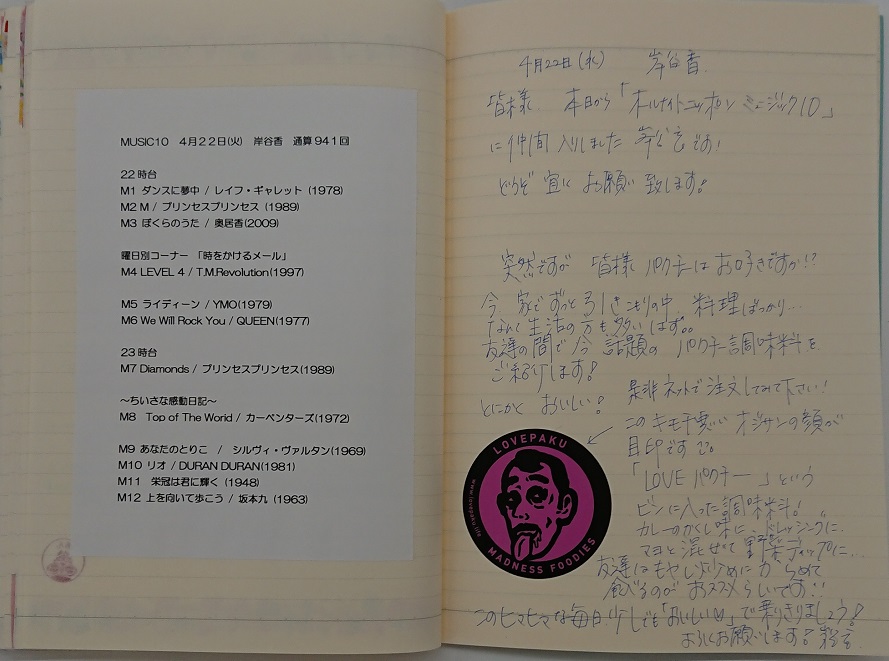 MUSIC10　4月22日(火)　岸谷香　通算941回
22時台
M1 ダンスに夢中 / レイフ・ギャレット (1978)
M2 M / プリンセスプリンセス (1989)
M3 ぼくらのうた / 奥居香(2009)
曜日別コーナー 「時をかけるメール」
M4 LEVEL 4 / T.M.Revolution(1997)
M5 ライディーン / YMO(1979)
M6 We Will Rock You / QUEEN(1977)
23時台
M7 Diamonds / プリンセスプリンセス(1989)
～ちいさな感動日記～
M8　Top of The World / カーペンターズ(1972)
M9 あなたのとりこ　/　シルヴィ・ヴァルタン(1969)
M10 リオ / DURAN DURAN(1981)
M11　栄冠は君に輝く (1948)
M12 上を向いて歩こう / 坂本九 (1963)
4月22日(水)　岸谷香
皆様　本日から「オールナイトニッポン ミュージック10」
に仲間入りしました 岸谷香です!
どうぞ 宜しく お願い 致します!
突然ですが 皆様 パクチーは お好きですか!?
今、家でずっと引きこもりの中、料理ばっかり...
なんて生活の方も多いはず。。
友達の間で今 話題の パクチー調味料を
ご紹介します!
是非ネットで注文してみて下さい!
とにかく おいしい!
このキモ可愛い オジサンの顔が
目印です
「LOVE パクチー」という
ビンに入った調味料!
カレーのかくし味に、ドレッシングに、
マヨと混ぜて 野菜ディップに...
友達はもやし炒めに からめて
食べるのが おススメらしいです!!
このヒマヒマな毎日 少しでも「おいしい」で乗りきりましょう!
よろしくお願いします! 香
LOVEPAKU
www.lovepaku.life
MADNESS FOODIES